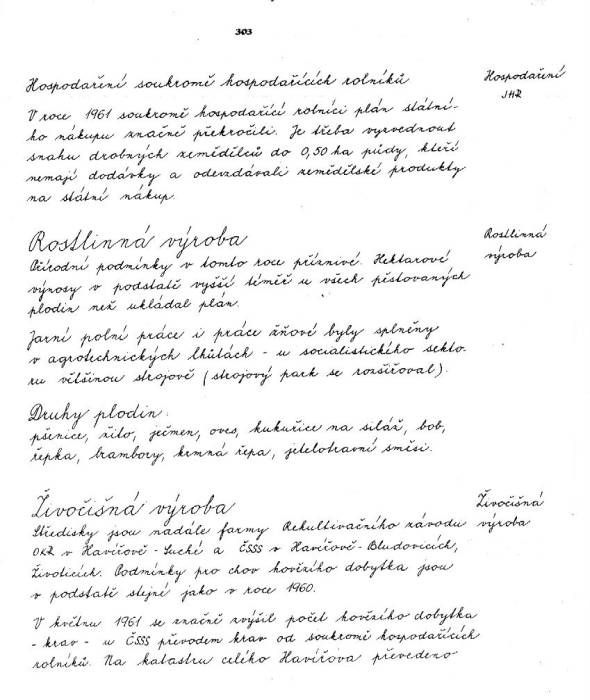 303
Hospodaření soukromě hospodařících rolníků
Hospodaření
JHR
V roce 1961 soukromě hospodařící rolníci plán státní-
ho nákupu značně překročili. Je třeba vyzvednout
snahu drobných zemědělců do 0,50 ha půdy, kteří
nemají dodávky a odevzdávali zemědělské produkty
na státní nákup.
Rostlinná výroba
Rostlinná
výroba
Přírodní podmínky v tomto roce příznivé. Hektarové
výnosy v podstatě vyšší téměř u všech pěstovaných
plodin než ukládal plán.
Jarní polní práce i práce žňové byly splněny
v agrotechnických lhůtách - u socialistického sekto-
ru většinou strojově (strojový park se rozšiřoval).
Druhy plodin:
pšenice, žito, ječmen, oves, kukuřice na siláž, bob,
řepka, brambory, krmná řepa, jetelotravní směsi.
Živočišná výroba
Živočišná
výroba
Středisky jsou nadále farmy Rekultivačního závodu
OKR v Havířově-Suché a ČSSS v Havířově-Bludovicích,
Životicích. Podmínky pro chov hovězího dobytka jsou
v podstatě stejné jako v roce 1960.
V květnu 1961 se značně zvýšil počet hovězího dobytka
- krav - u ČSSS převodem krav od soukromě hospodařících
rolníků. Na katastru celého Havířova převedeno